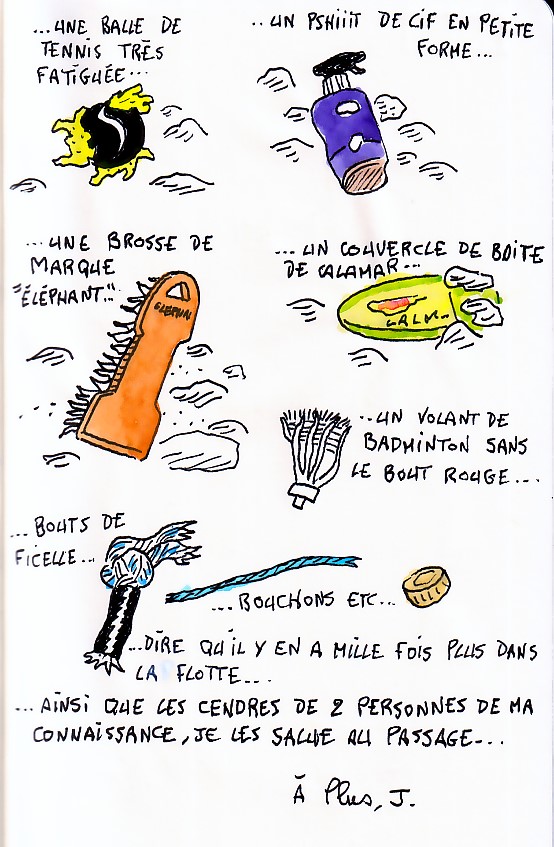 ...UNE BALLE DE
TENNIS TRÈS
FATIGUÉE...
..UN PSHIIIT DE CIF EN PETITE
FORME...
...UNE BROSSE DE
MARQUE
"ÉLÉPHANT..."
...UN COUVERCLE DE BOITE
DE CALAMAR...
..UN VOLANT DE
BADMINTON SANS
LE BOUT ROUGE...
...BOUTS DE
FICELLE...
...BOUCHONS ETC...
...DIRE QU'IL Y EN A MILLE FOIS PLUS DANS
LA FLOTTE...
...AINSI QUE LES CENDRES DE 2 PERSONNES DE MA
CONNAISSANCE, JE LES SALUE AU PASSAGE...
À Plus, J.